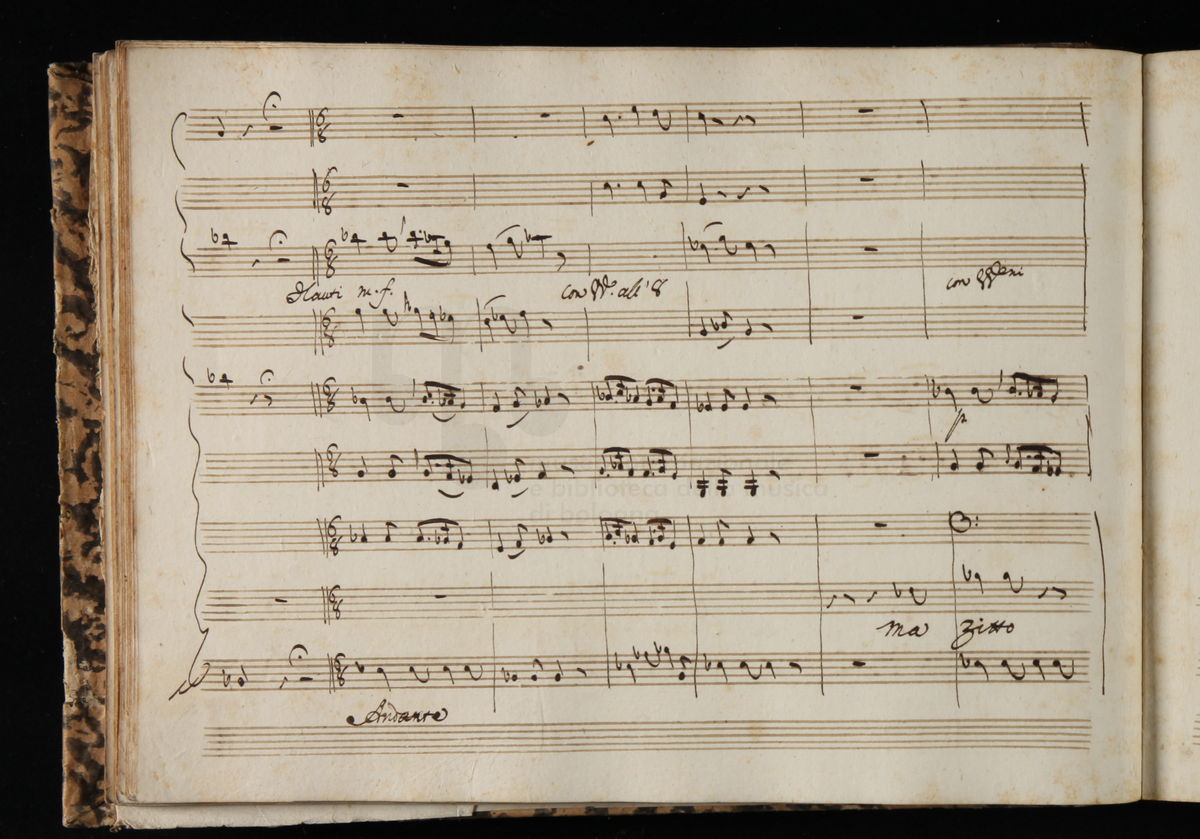 Flauti m.f.
con VV.ni all' 8
con VVni
ma zitto
Andante
e biblioteca della musica
di bologna